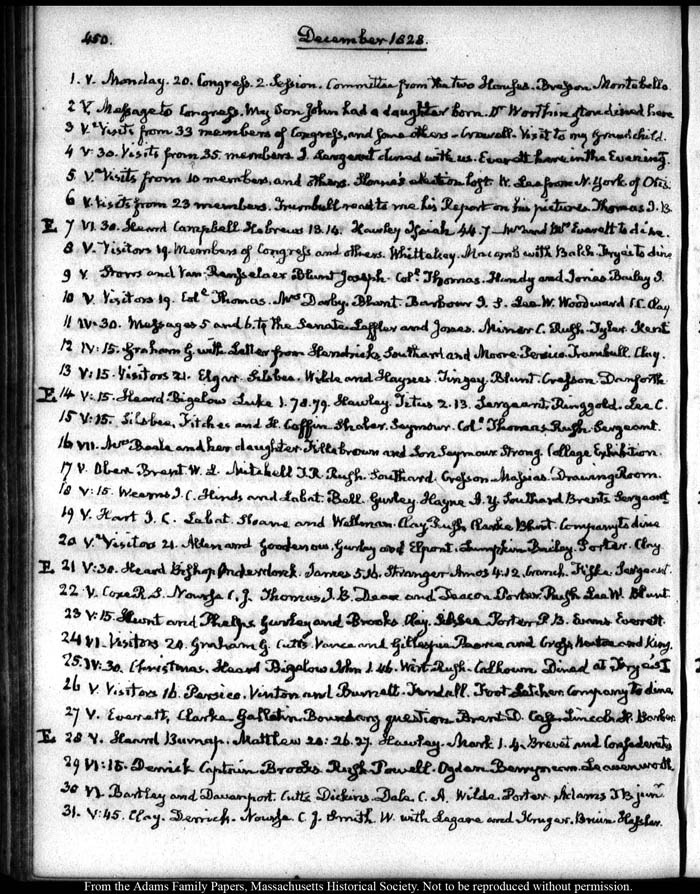 450.
December 1828.
1. V. Monday. 20. Congress. 2. Session. Committee from the two Houses. Bresson. Montebello
2 V. Message to Congress. My Son John had a daughter born. Dr. Worthington dined here
3 V. Visits from 33 members of Congress, and some others - Crowell. Visit to my Grandchild.
4 V:30. Visits from 35 members. J. Sergeant dined with us. Everett here in the Evening.
5 V. Visits from 10 members, and others. Sloane's election lost. W. Lee from N. York of Otis.
6 V. Visits from 23 members. Trumbull read to me his Report on his pictures. Thomas J. B
E 7 VI.30. Heard Campbell Hebrews 13.14. Hawley Isaiah 44.7 - Mr and Mrs Everett to dine.
8 V. Visitors 19. Members of Congress and others. Whittlesey. Macomb with Balch. Frye's to dine
9 V. Storrs and Van Rensselaer Blunt Joseph. Col. Thomas. Hundy and Jonas. Bailey J.
10 V. Visitors 19. Col. Thomas. Mrs Darby. Blunt. Barbour J. S. Lee W. Woodward. Clay
11 IV:30. Messages 5 and 6. to the Senate. Leffler and Jones. Miner C. Rush. Tyler. Kent
12 IV:15. Graham G. with Letter from Hendricks. Southard and Moore. Persico. Trumbull. Clay.
13 V:15. Visitors 21. Elgar. Silsbee. Wilde and Haynes. Tingey. Blunt. Cresson. Danforth
E 14 V:15. Heard Bigelow Luke 1.78.79. Hawley. Titus 2.13. Sergeant. Ringgold. Lee C.
15 V:15. Silsbee, Fitches and H. Coffin. Seymour. Col. Thomas. Rush. Sergeant.
16 VII. Mrs Beale and her daughter. Fillebrown and Son. Seymour. Strong. College Exhibition.
17 V. Ober. Brent. W. L. Mitchell T.R. Rush. Southard. Cresson. Massias. Drawing Room.
18 V:15. Wearns J. C. Hinds and Labat. Bell. Gurley. Hayne. Southard. Brents. Sergeant
19 V. Hart J. C. Labat. Sloane and Wellman. Clay. Rush. Clarke. Blunt. Company to dine
20. V. Visitors 21. Allen and Goodenow. Gurley and Lumpkin. Bailey. Porter. Clay
E 21 V:30. Heard Bishop Onderdonk. James 5.16. Stranger Amos 4.12. Cranch. Fiske. Sergeant.
22. V. Coxe R. S. Nourse C. J. Thomas, J. B. Deax and Deacon. Porter. Rush. Lee W. Blunt.
23 V:15. Hunt and Phelps. Gurley and Brooks. Clay. Silsbee. Porter P. B. Evans. Everett.
24 VI. Visitors 20. Graham G. Cutts. Vance and Gillespie. Pearce and Cross. Newton and King.
25. IV:30. Christmas. Heard Bigelow John 1.46. Wirt. Rush. Calhoun. Dined at Frye's I
26 V. Visitors 16. Persico. Vinton and Burnett. Kendall. Foot. Letcher. Company to dine
27 V. Everett, Clarke. Gallatin. Boundary question. Brent. D. Cass. Lincoln. Barber
E 28 V. Heard Burnap. Matthew 20:26.27. Hawley. Mark 1.4. Grevet and Confederate
29 VI:15. Derrick. Captain Brooks. Rush. Powell. Ogden. Berryman. Leavenworth
30 VI. Bartley and Davenport. Cutts. Dickins. Dale. C. A. Wilde. Porter. Adams T B junr.
31. V:45. Clay. Derrick. Nourse C. J. Smith. W. with Legare and Kruger. Bruin. Hassler.
From the Adams Family Papers, Massachusetts Historical Society. Not to be reproduced without permission.